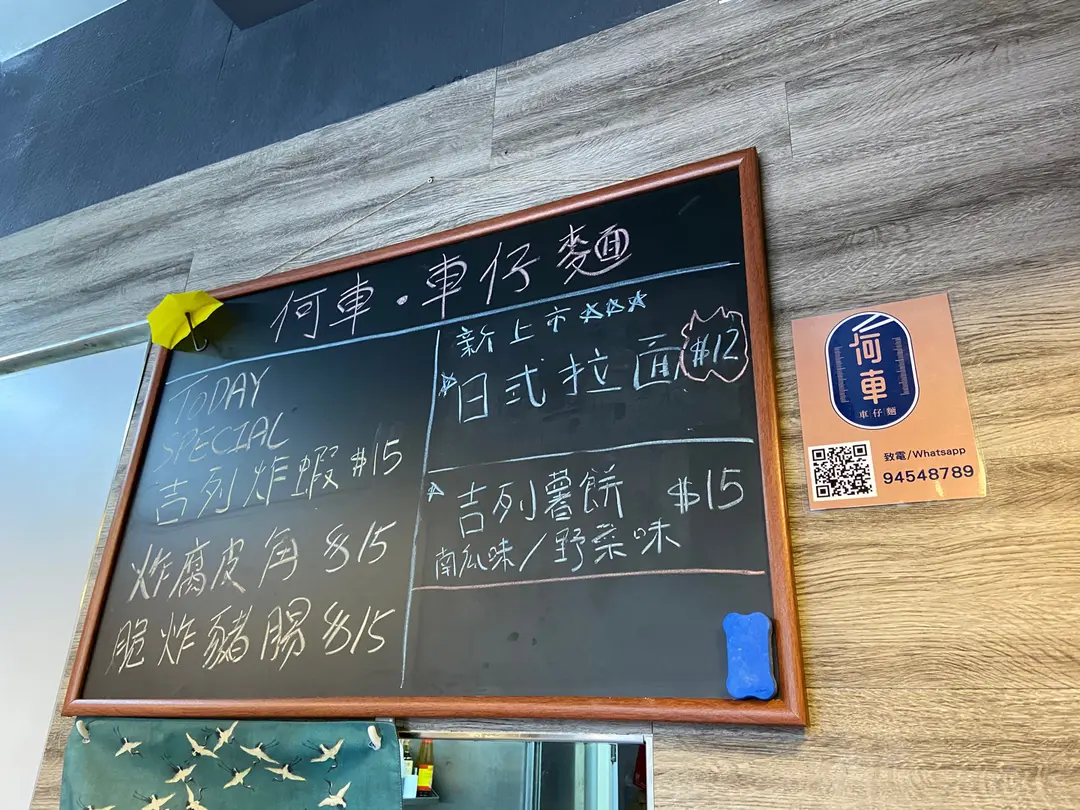 何車·車仔麵
TODAY
SPECIAL
吉列炸蝦 $15
炸腐皮角 $15
脆炸豬腸 $15
新上市☆☆☆
☆日式拉面 $12
☆吉列薯餅 $15
南瓜味/野菜味
何車
車仔麵
致電/Whatsapp
94548789